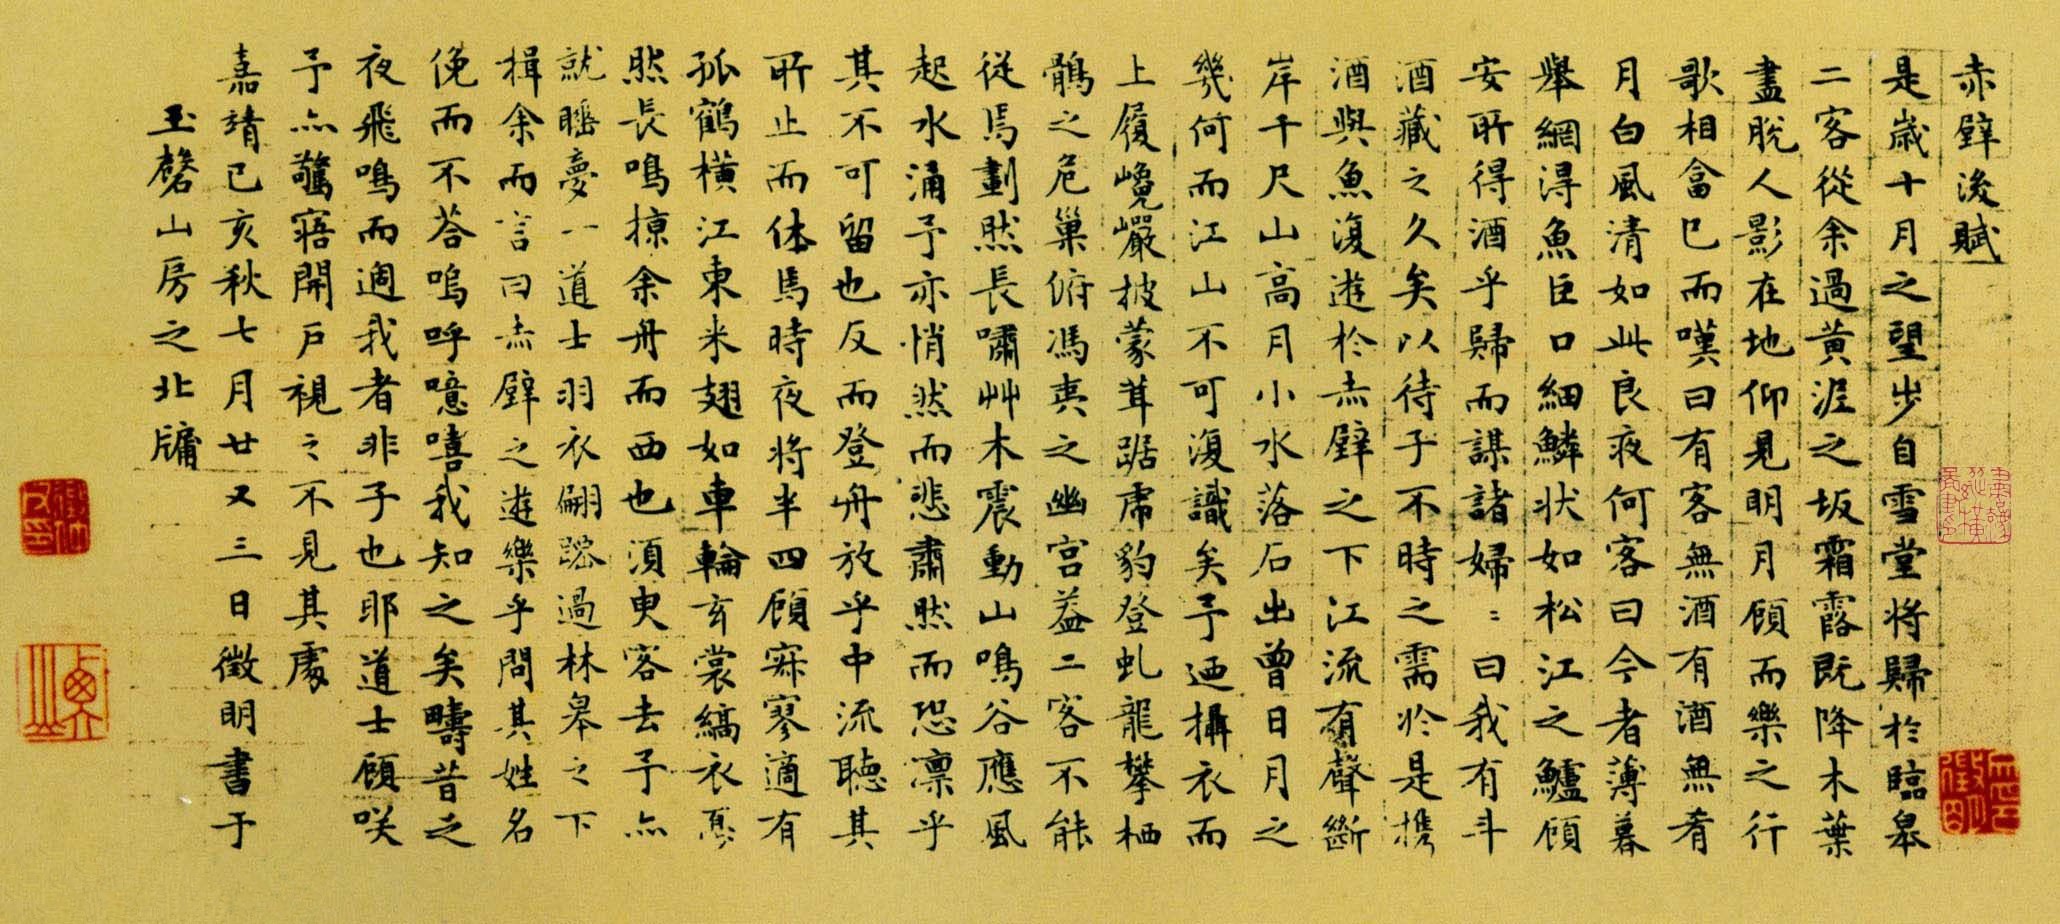 赤壁後賦
是歲十月之望步自雪堂將歸於臨皋
二客從余過黃泥之坂霜露既降木葉
盡脫人影在地仰見明月顧而樂之行
歌相畣已而嘆曰有客無酒有酒無肴
月白風清如此良夜何客曰今者薄暮
舉網得魚巨口細鱗狀如松江之鱸顧
安所得酒乎歸而謀諸婦〻曰我有斗
酒藏之久矣以待子不時之需於是攜
酒與魚復遊於赤壁之下江流有聲斷
岸千尺山高月小水落石出曾日月之
幾何而江山不可復識矣予迺攝衣而
上履巉巖披蒙茸踞虎豹登虬龍攀栖
鶻之危巢俯馮夷之幽宮益二客不能
從焉劃然長嘯艸木震動山鳴谷應風
起水涌予亦悄然而悲肅然而恐凜乎
其不可留也反而登舟放乎中流聽其
所止而休焉時夜將半四顧寂寥適有
孤鶴橫江東來翅如車輪玄裳縞衣戛
然長鳴掠余舟而西也須臾客去予亦
就睡夢一道士羽衣翩躚過林皋之下
揖余而言曰赤壁之遊樂乎問其姓名
俛而不荅嗚呼噫嘻我知之矣疇昔之
夜飛鳴而過我者非子也耶道士顧笑
予亦驚寤開戶視之不見其處
嘉靖己亥秋七月廿又三日徵明書于
玉磬山房之北牖